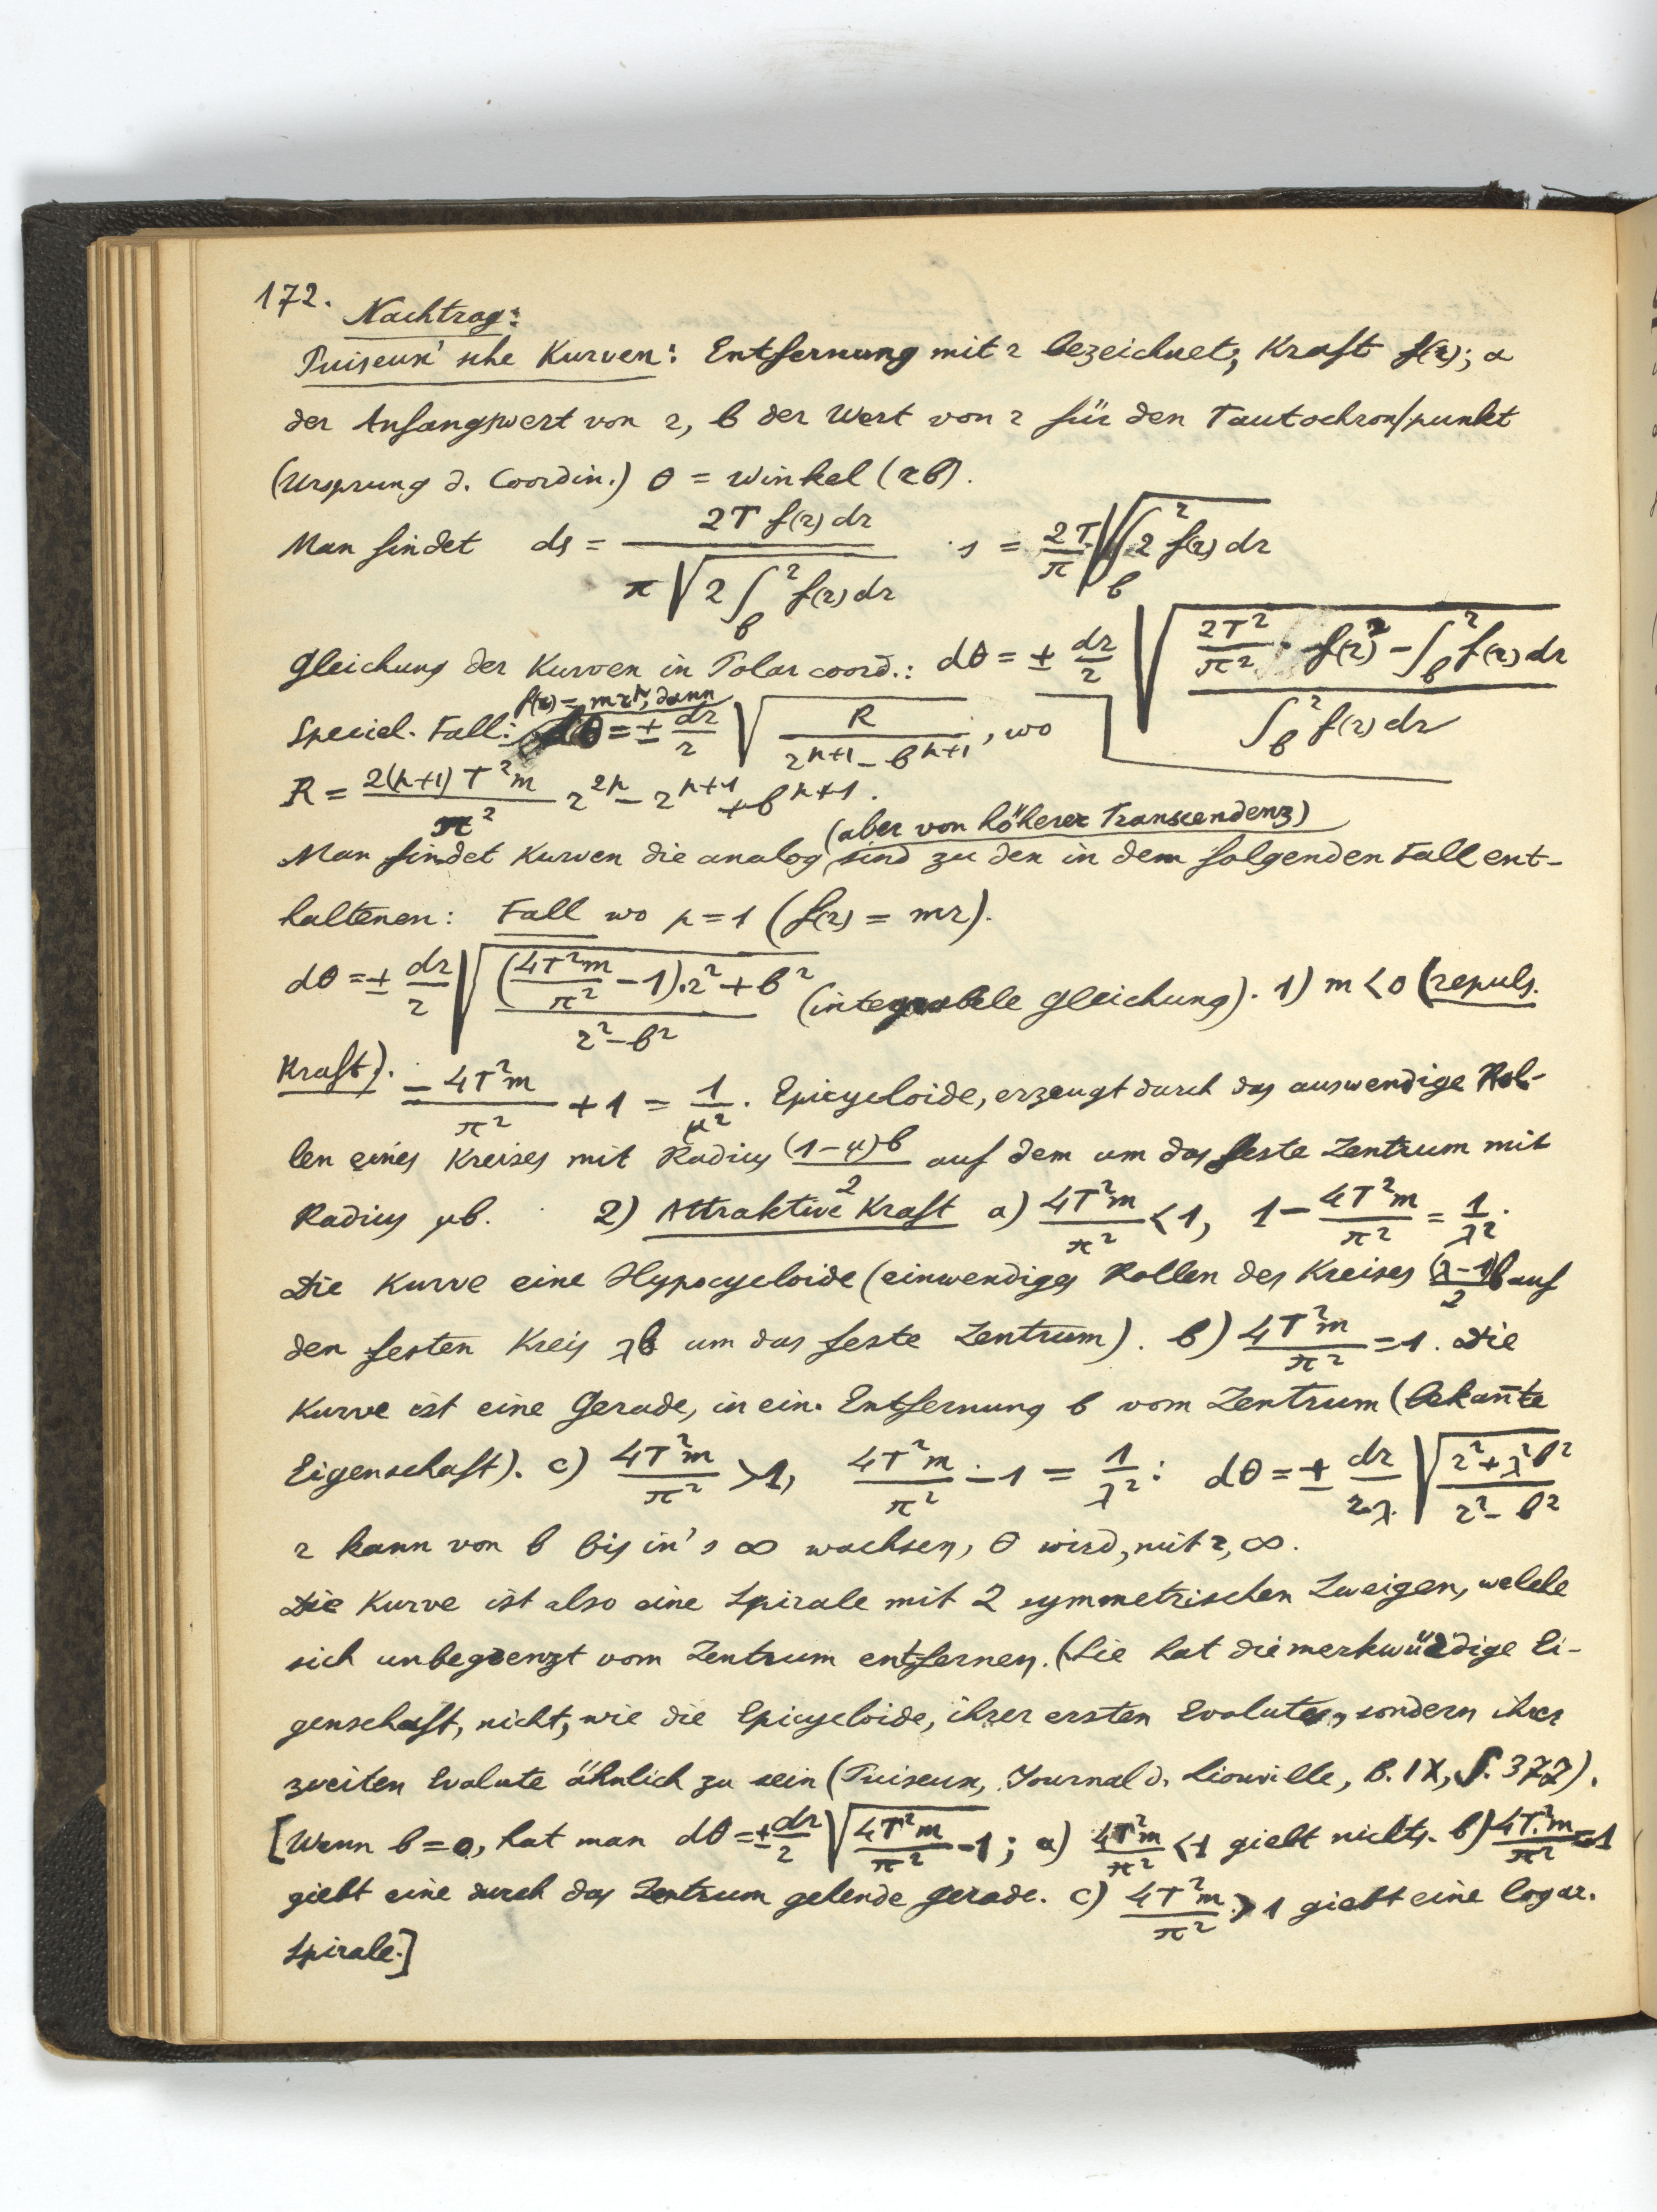 172. Nachtrag:
Puiseux'sche Kurven: Entfernung mit r bezeichnet, Kraft f(r); a
der Anfangswert von r, b der Wert von r für den Tautochron/punkt
(Ursprung d. Coordin.) θ = Winkel (rb).
Man findet ds = 2T f(r) dr / π√(2∫_b^r f(r) dr) s = 2T/π √(∫_b^r 2 f(r) dr)
Gleichung der Kurven in Polarcoord.: dθ = ± dr/r √((2T²/π² · f(r)² − ∫_b^r f(r) dr) / ∫_b^r f(r) dr)
f(r) = mr^μ, dann
Speciel. Fall: dθ = ± dr/r √(R / (r^(μ+1) − b^(μ+1))), wo
R = 2(μ+1)T²m/π² r^(2μ) − r^(μ+1) + b^(μ+1).
(aber von höherer Transcendenz)
Man findet Kurven die analog sind zu den in dem folgenden Fall ent-
haltenen: Fall wo μ = 1 (f(r) = mr).
dθ = ± dr/r √(((4T²m/π² − 1).r² + b²) / (r² − b²)) (integrabele Gleichung). 1) m < 0 (repuls.
Kraft). − 4T²m/π² + 1 = 1/μ². Epicycloide, erzeugt durch das auswendige Rol-
len eines Kreises mit Radius (1−μ)b/2 auf dem um das feste Zentrum mit
Radius μb. 2) Attraktive Kraft a) 4T²m/π² < 1, 1 − 4T²m/π² = 1/λ².
Die Kurve eine Hypocycloide (einwendiges Rollen des Kreises (λ−1)b/2 auf
den festen Kreis λb um das feste Zentrum). b) 4T²m/π² = 1. Die
Kurve ist eine Gerade, in ein. Entfernung b vom Zentrum (bekan̄te
Eigenschaft). c) 4T²m/π² > 1, 4T²m/π² − 1 = 1/λ²: dθ = ± dr/r.λ. √((r² + λ²b²) / (r² − b²))
r kann von b bis in's ∞ wachsen, θ wird, mit r, ∞.
Die Kurve ist also eine Spirale mit 2 symmetrischen Zweigen, welche
sich unbegrenzt vom Zentrum entfernen. (Sie hat die merkwürdige Ei-
genschaft, nicht, wie die Epicycloide, ihrer ersten Evolute, sondern ihrer
zweiten Evolute ähnlich zu sein (Puiseux, Journal d. Liouville, B. IX, S. 372).
[Wenn b = 0, hat man dθ = ± dr/r √(4T²m/π² − 1); a) 4T²m/π² < 1 giebt nichts. b) 4T²m/π² = 1
giebt eine durch das Zentrum gehende Gerade. c) 4T²m/π² > 1 giebt eine logar.
Spirale.]